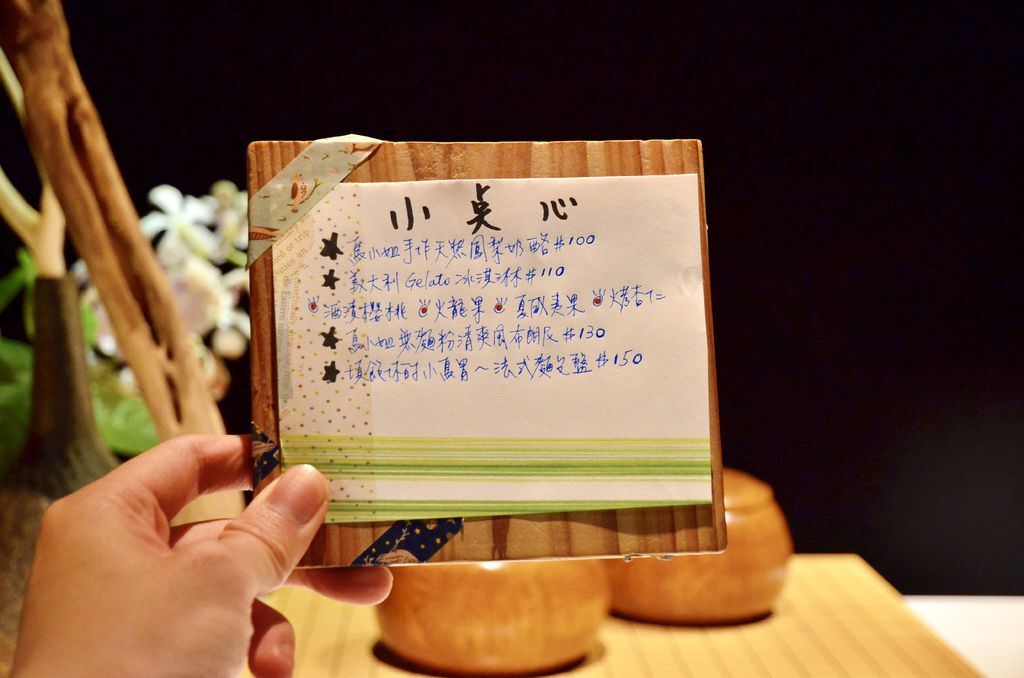 小点心
馬小姐手作天然鳳梨奶酪#100
義大利Gelato冰淇淋#110
酒漬櫻桃 火龍果 夏威夷果 烤杏仁
馬小姐無麵粉清爽風布朗尼#130
填飽你的小鳥胃~法式麵包盤#150